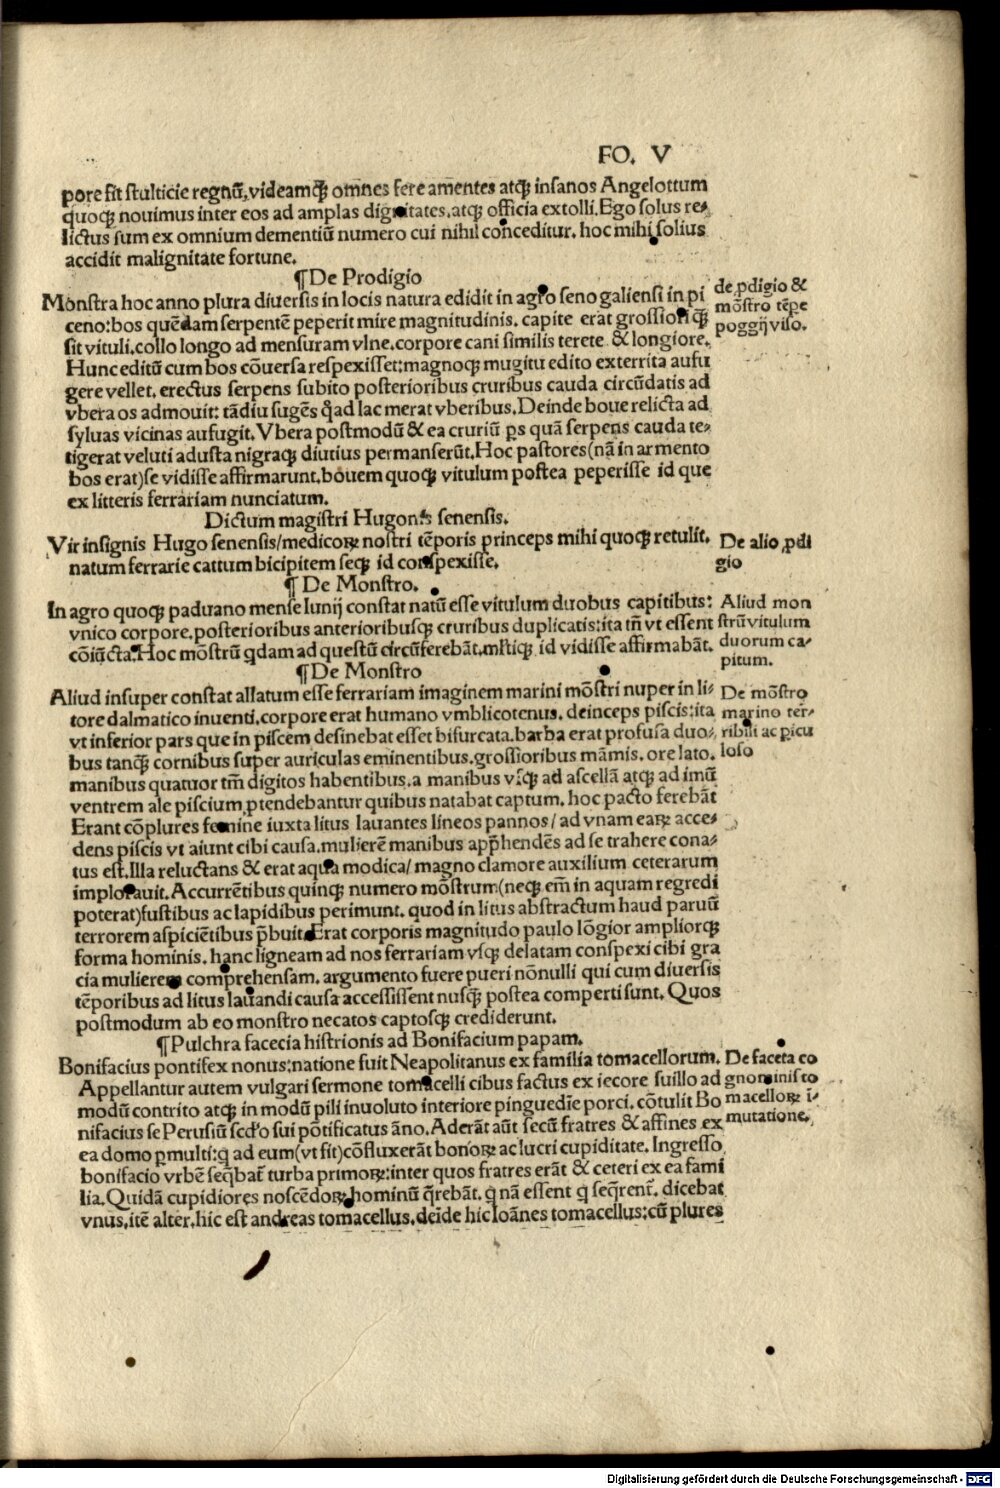 FO. V
pore sit stulticie regnū, videamꝗ omnes fere amentes atꝗ insanos Angelottum
quoꝗ nouimus inter eos ad amplas dignitates. atꝗ officia extolli. Ego solus re-
lictus sum ex omnium dementiū numero cui nihil conceditur. hoc mihi solius
accidit malignitate fortune.
¶ De Prodigio
Monstra hoc anno plura diuersis in locis natura edidit in agro seno galiensi in pi
ceno: bos quēdam serpentē peperit mire magnitudinis. capite erat grossiori ꝗ̄
sit vituli. collo longo ad mensuram vlne. corpore cani similis terete & longiore.
Hunc editū cum bos cōuersa respexisset: magnoꝗ mugitu edito exterrita aufu
gere vellet. erectus serpens subito posterioribus cruribus cauda circūdatis ad
vbera os admouit: tādiu sugēs q̄ad lac merat vberibus. Deinde boue relicta ad
syluas vicinas aufugit. Vbera postmodū & ea cruriū ꝑs quā serpens cauda te-
tigerat veluti adusta nigraꝗ diutius permanserūt. Hoc pastores (nā in armento
bos erat) se vidisse affirmarunt. bouem quoꝗ vitulum postea peperisse id que
ex litteris ferrariam nunciatum.
de ꝓdigio &
mōstrō tēpe
poggij viso.
Dictum magistri Hugonis senensis.
Vir insignis Hugo senensis/ medicoꝝ nostri tēporis princeps mihi quoꝗ retulit.
natum ferrarie cattum bicipitem seꝗ id conspexisse.
De alio ꝓdi
gio
¶ De Monstro.
In agro quoꝗ paduano mense Iunij constat natū esse vitulum duobus capitibus:
vnico corpore. posterioribus anterioribusꝗ cruribus duplicatis: ita tn̄ vt essent
cōiūcta. Hoc mōstrū qdam ad questū circūferebāt. mltiꝗ id vidisse affirmabāt.
Aliud mon
strū vitulum
duorum ca-
pitum.
¶ De Monstro
Aliud insuper constat allatum esse ferrariam imaginem marini mōstri nuper in li-
tore dalmatico inuenti. corpore erat humano vmblicotenus. deinceps piscis: ita
vt inferior pars que in piscem desinebat esset bifurcata. barba erat profusa duo-
bus tanꝗ̄ cornibus super auriculas eminentibus. grossioribus māmis. ore lato.
manibus quatuor tm̄ digitos habentibus. a manibus vsꝗ ad ascellā atꝗ ad imū
ventrem ale piscium ꝓtendebantur quibus natabat captum. hoc pacto ferebāt
Erant cōplures femine iuxta litus lauantes lineos pannos/ ad vnam eaꝝ acce-
dens piscis vt aiunt cibi causa. mulierē manibus app̄hendēs ad se trahere cona-
tus est. Illa reluctans & erat aqua modica/ magno clamore auxilium ceterarum
implorauit. Accurrētibus quinꝗ numero mōstrum (neꝗ em̄ in aquam regredi
poterat) fustibus ac lapidibus perimunt. quod in litus abstractum haud paruū
terrorem aspiciētibus p̄buit. Erat corporis magnitudo paulo lōgior ampliorꝗ
forma hominis. hanc ligneam ad nos ferrariam vsꝗ delatam conspexi cibi gra
cia mulierem comprehensam. argumento fuere pueri nōnulli qui cum diuersis
tēporibus ad litus lauandi causa accessissent nusꝗ̄ postea comperti sunt. Quos
postmodum ab eo monstro necatos captosꝗ crediderunt.
De mōstro
marino ter-
ribili ac ꝑicu
loso
¶ Pulchra facecia histrionis ad Bonifacium papam.
Bonifacius pontifex nonus: natione fuit Neapolitanus ex familia tomacellorum.
Appellantur autem vulgari sermone tomacelli cibus factus ex iecore suillo ad
modū contrito atꝗ in modū pili inuoluto interiore pinguedīe porci. cōtulit Bo
nifacius se Perusiū scd'o sui pōtificatus āno. Aderāt aūt secū fratres & affines ex
ea domo ꝑmulti: q ad eum (vt fit) cōfluxerāt bonoꝝ ac lucri cupiditate. Ingresso
bonifacio vrbē seq̄bat̄ turba primoꝝ: inter quos fratres erāt & ceteri ex ea fami
lia. Quidā cupidiores noscēdoꝝ hominū q̄rebāt. q nā essent q seq̄rent̄. dicebat
vnus, itē alter. hic est andreas tomacellus. deīde hic Ioānes tomacellus: cū plures
De faceta co
gnominis to
macelloꝝ ī-
mutatione.
Digitalisierung gefördert durch die Deutsche Forschungsgemeinschaft - DFG